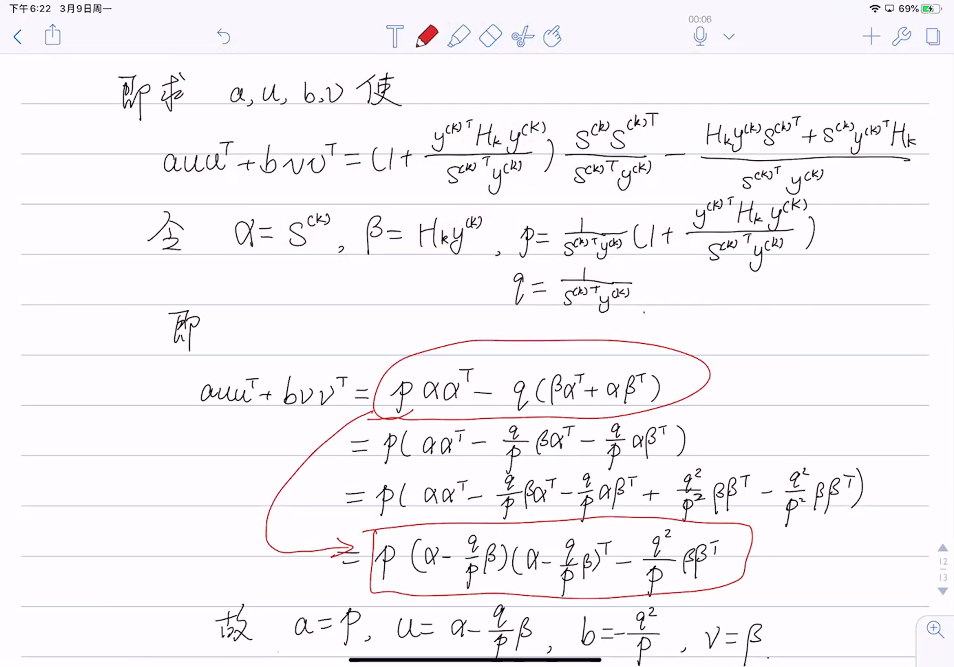 下午6:22 3月9日周一 69%
00:06
即求 a, u, b, v 使
auuᵀ + bvvᵀ = (1 + y⁽ᵏ⁾ᵀHₖy⁽ᵏ⁾ / s⁽ᵏ⁾ᵀy⁽ᵏ⁾) s⁽ᵏ⁾s⁽ᵏ⁾ᵀ / s⁽ᵏ⁾ᵀy⁽ᵏ⁾ − (Hₖy⁽ᵏ⁾s⁽ᵏ⁾ᵀ + s⁽ᵏ⁾y⁽ᵏ⁾ᵀHₖ) / s⁽ᵏ⁾ᵀy⁽ᵏ⁾
令 α = s⁽ᵏ⁾, β = Hₖy⁽ᵏ⁾, p = 1 / s⁽ᵏ⁾ᵀy⁽ᵏ⁾ (1 + y⁽ᵏ⁾ᵀHₖy⁽ᵏ⁾ / s⁽ᵏ⁾ᵀy⁽ᵏ⁾)
q = 1 / s⁽ᵏ⁾ᵀy⁽ᵏ⁾.
即
auuᵀ + bvvᵀ = pααᵀ − q(βαᵀ + αβᵀ)
= p(ααᵀ − q/p βαᵀ − q/p αβᵀ)
= p(ααᵀ − q/p βαᵀ − q/p αβᵀ + q²/p² ββᵀ − q²/p² ββᵀ)
= p(α − q/p β)(α − q/p β)ᵀ − q²/p ββᵀ
故 a = p, u = α − q/p β, b = −q²/p, v = β.
12
13